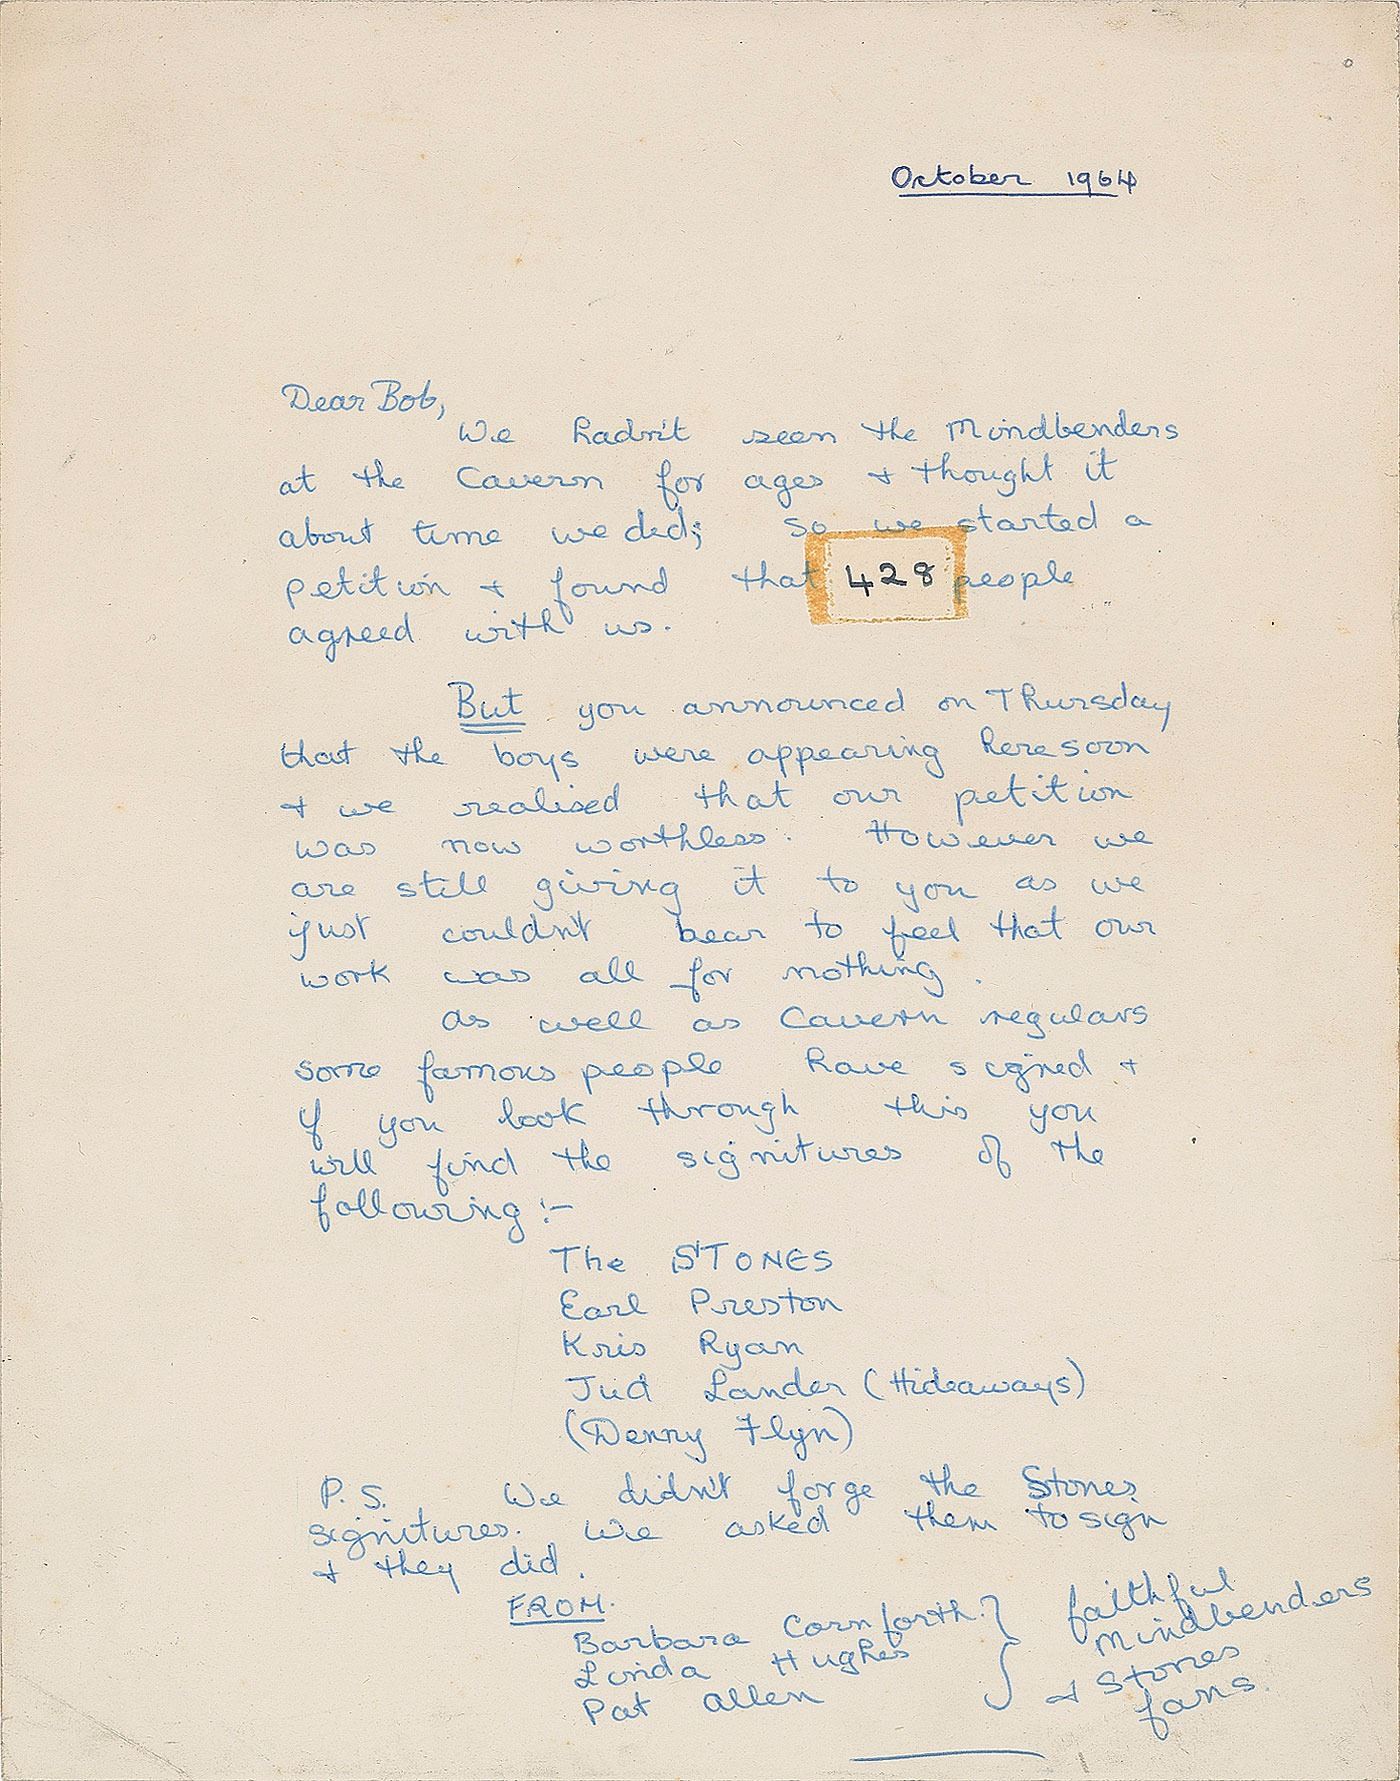 October 1964
Dear Bob,
We hadn't seen the Mindbenders
at the Cavern for ages + thought it
about time we did; So we started a
petition + found that 428 people
agreed with us.
But you announced on Thursday
that the boys were appearing here soon
+ we realised that our petition
was now worthless. However we
are still giving it to you as we
just couldn't bear to feel that our
work was all for nothing.
As well as Cavern regulars
some famous people have signed +
if you look through this you
will find the signitures of the
following :-
The STONES
Earl Preston
Kris Ryan
Jud Lander (Hideaways)
(Denny Flyn)
P.S. We didn't forge the Stones
signitures. We asked them to sign
+ they did.
FROM.
Barbara Cornforth.
Linda Hughes
Pat Allen
faithful
Mindbenders
+ Stones
fans.